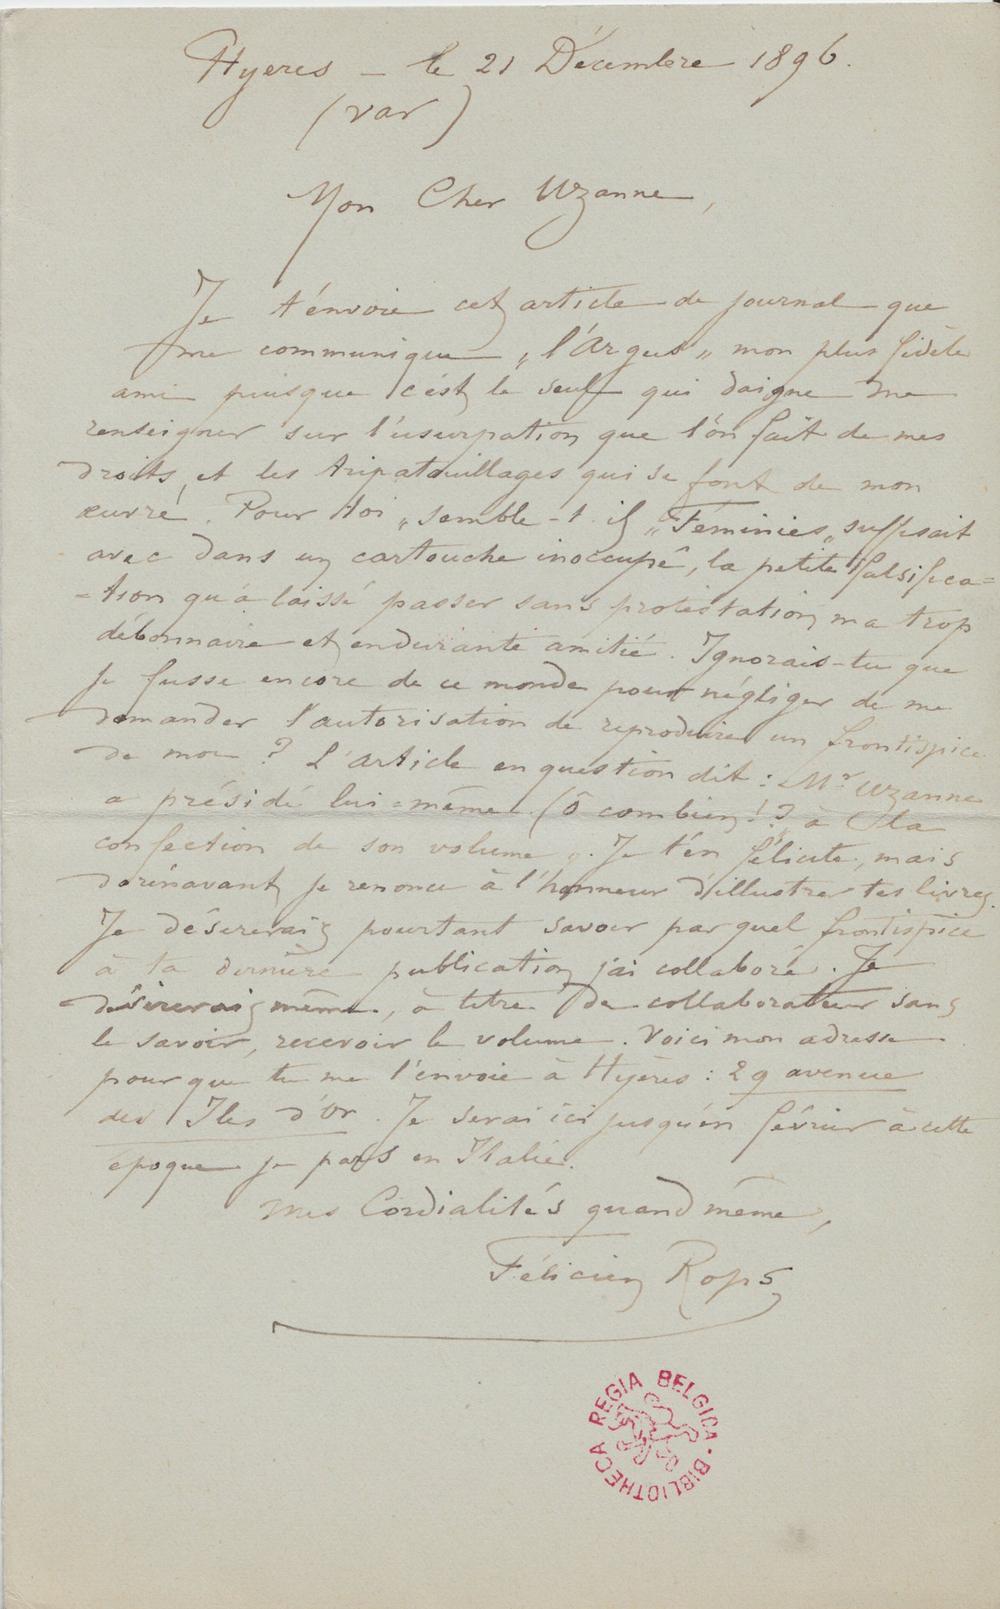 Hyeres – le 21 Décembre 1896.
(var)
Mon Cher Uzanne,
Je t'envoie cet article de journal que
me communique „l'Argus„ mon plus fidèle
ami puisque c'est le seul qui daigne me
renseigner sur l'usurpation que l'on fait de mes
droits, et les tripatouillages qui se font de mon
œuvre. Pour toi „semble-t-il „Féminies„ suffisait
avec dans un cartouche inoccupé, la petite falsifica=
=tion qu'a laissé passer sans protestation ma trop
débonnaire et endurante amitié. Ignorais-tu que
je fusse encore de ce monde pour négliger de me
demander l'autorisation de reproduire un frontispice
de moi ? L'article en question dit : Mr Uzanne
a présidé lui=même (ô combien !? à la
confection de son volume„. Je t'en félicite, mais
dorénavant je renonce à l'honneur d'illustrer tes livres.
Je désirerais pourtant savoir par quel frontispice
à ta dernière publication j'ai collaboré. Je
désirerais même, à titre de collaborateur sans
le savoir, recevoir le volume. Voici mon adresse
pour que tu me l'envoie à Hyères : 29 avenue
des Iles d'Or. Je serai ici jusqu'en février à cette
époque je pars en Italie.
Mes Cordialités quand même,
Félicien Rops
BIBLIOTHECA REGIA BELGICA